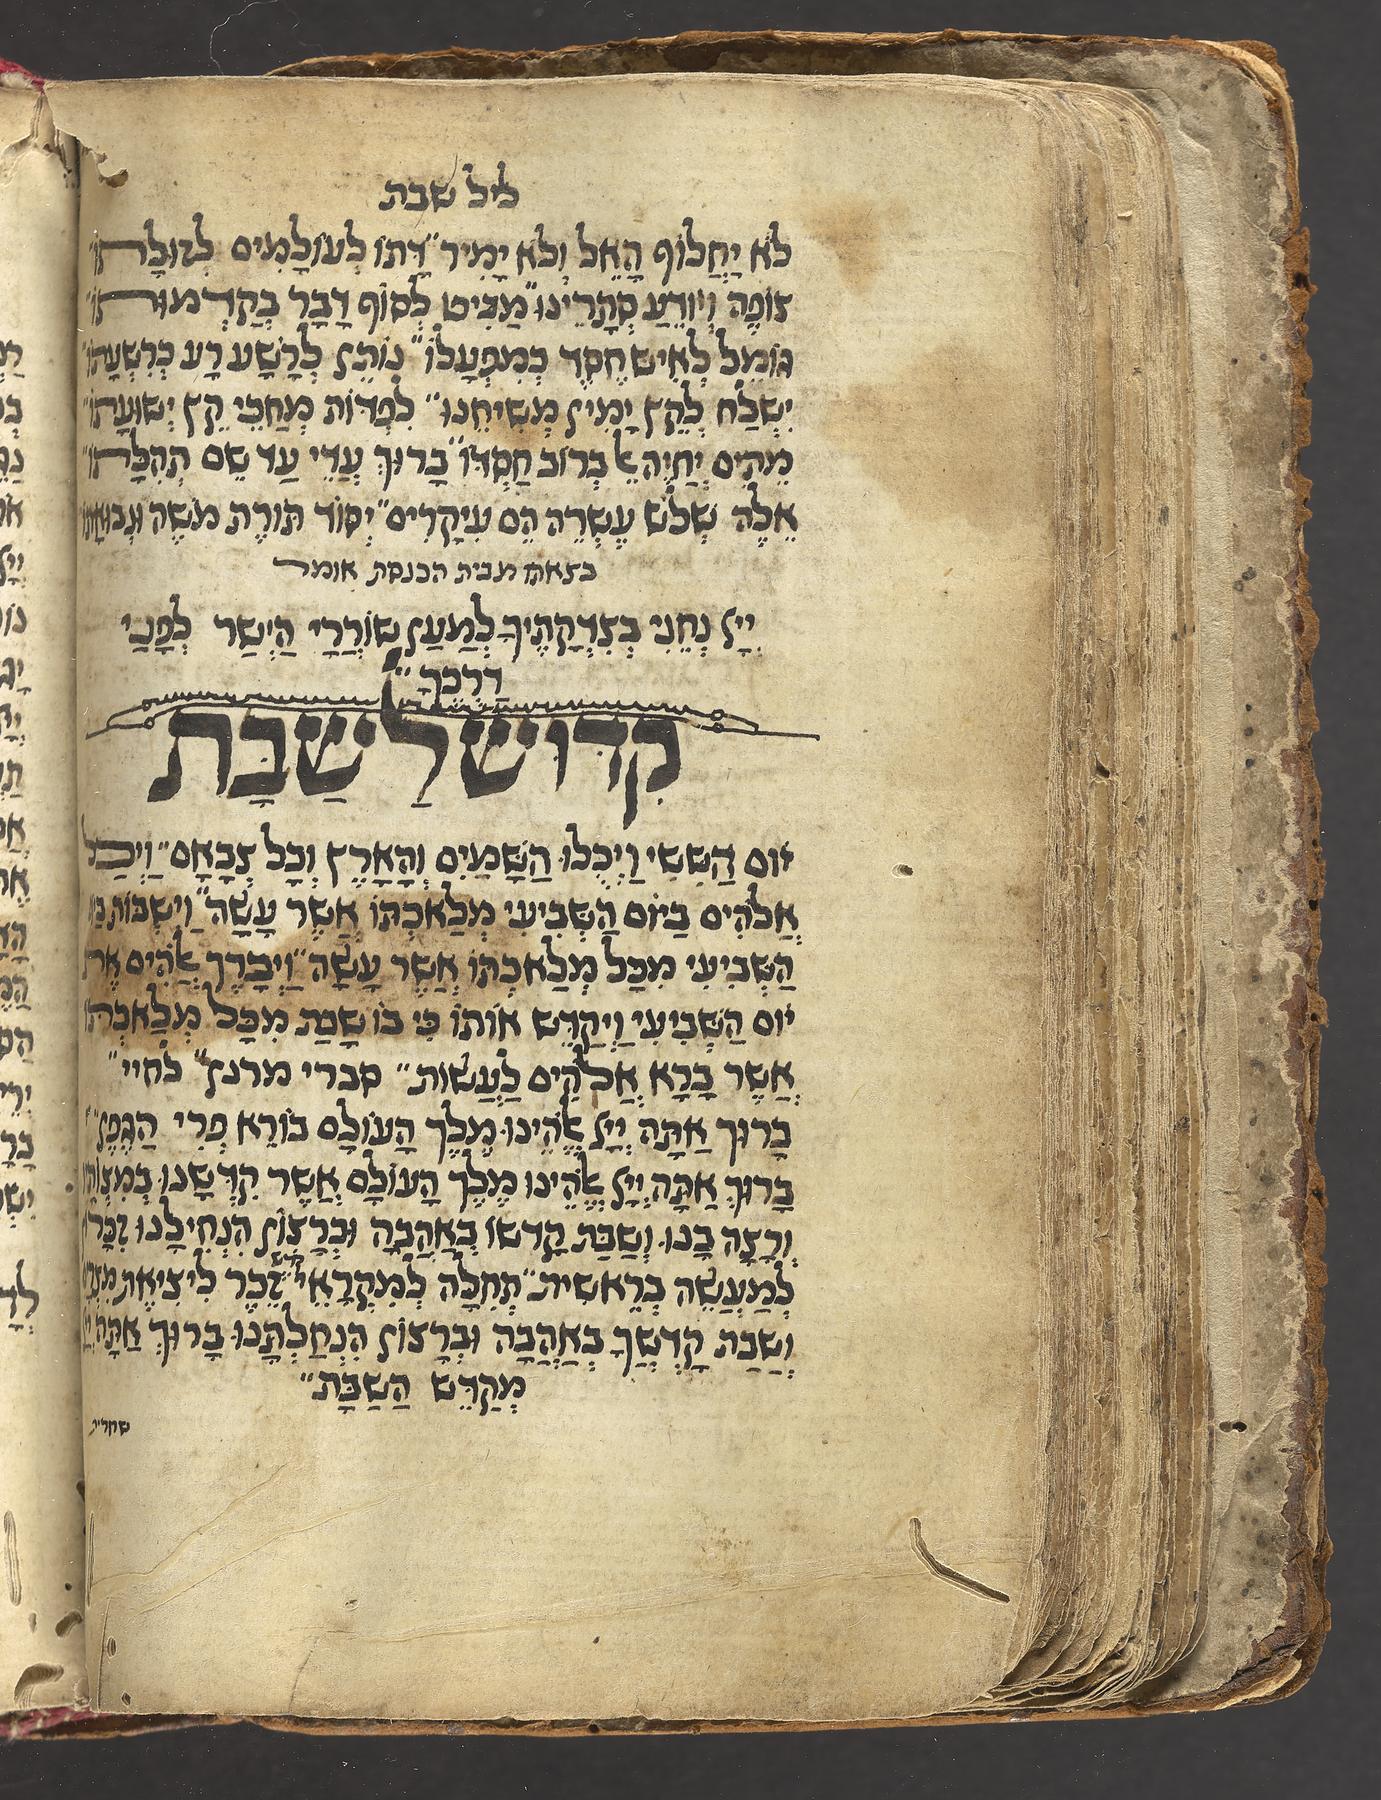 ליל שבת
לֹא יַחֲלוֹף הָאֵל וְלֹא יָמִיר״ דָּתוֹ לְעוֹלָמִים לְזוּלָתוֹ
צוֹפֶה וְיוֹדֵעַ סְתָרֵינוּ״ מַבִּיט לְסוֹף דָּבָר בְּקַדְמוּתוֹ
גּוֹמֵל לְאִישׁ חֶסֶד כְּמִפְעָלוֹ״ נוֹתֵן לְרָשָׁע רָע כְּרִשְׁעָתוֹ״
יִשְׁלַח לְקֵץ יָמִין מְשִׁיחֵנוּ״ לִפְדּוֹת מְחַכֵּי קֵץ יְשׁוּעָתוֹ״
מֵתִים יְחַיֶּה אֵל בְּרוֹב חַסְדּוֹ״ בָּרוּךְ עֲדֵי עַד שֵׁם תְּהִלָּתוֹ״
אֵלֶּה שְׁלֹשׁ עֶשְׂרֵה הֵם עִיקָּרִים״ יְסוֹד תּוֹרַת מֹשֶׁה וּנְבוּאָתוֹ
בצאתו מבית הכנסת אומר
יְיָ נְחֵנִי בְּצִדְקָתֶיךָ לְמַעַן שׁוֹרְרָי הַיְשַׁר לְפָנַי
דַּרְכֶּךָ״
קִדּוּשׁ לַשַּׁבָּת
יוֹם הַשִּׁשִּׁי וַיְכֻלּוּ הַשָּׁמַיִם וְהָאָרֶץ וְכָל צְבָאָם״ וַיְכַל
אֱלֹהִים בַּיּוֹם הַשְּׁבִיעִי מְלַאכְתּוֹ אֲשֶׁר עָשָׂה״ וַיִּשְׁבּוֹת
הַשְּׁבִיעִי מִכָּל מְלַאכְתּוֹ אֲשֶׁר עָשָׂה״ וַיְבָרֶךְ אֱלֹהִים אֶת
יוֹם הַשְּׁבִיעִי וַיְקַדֵּשׁ אוֹתוֹ כִּי בוֹ שָׁבַת מִכָּל מְלַאכְתּוֹ
אֲשֶׁר בָּרָא אֱלֹהִים לַעֲשׂוֹת״ סברי מרנן״ לחיי״
בָּרוּךְ אַתָּה יְיָ אֱלֹהֵינוּ מֶלֶךְ הָעוֹלָם בּוֹרֵא פְּרִי הַגֶּפֶן״
בָּרוּךְ אַתָּה יְיָ אֱלֹהֵינוּ מֶלֶךְ הָעוֹלָם אֲשֶׁר קִדְּשָׁנוּ בְּמִצְוֹתָיו
וְרָצָה בָנוּ וְשַׁבַּת קָדְשׁוֹ בְּאַהֲבָה וּבְרָצוֹן הִנְחִילָנוּ זִכָּרוֹן
לְמַעֲשֵׂה בְרֵאשִׁית״ תְּחִלָּה לְמִקְרָאֵי קדש זֵכֶר לִיצִיאַת מִצְרָיִם
וְשַׁבַּת קָדְשְׁךָ בְּאַהֲבָה וּבְרָצוֹן הִנְחַלְתָּנוּ בָּרוּךְ אַתָּה יְיָ
מְקַדֵּשׁ הַשַּׁבָּת״
שחרית